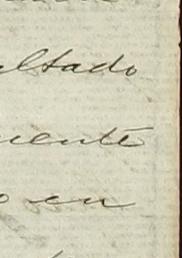 ultado
mente
o en